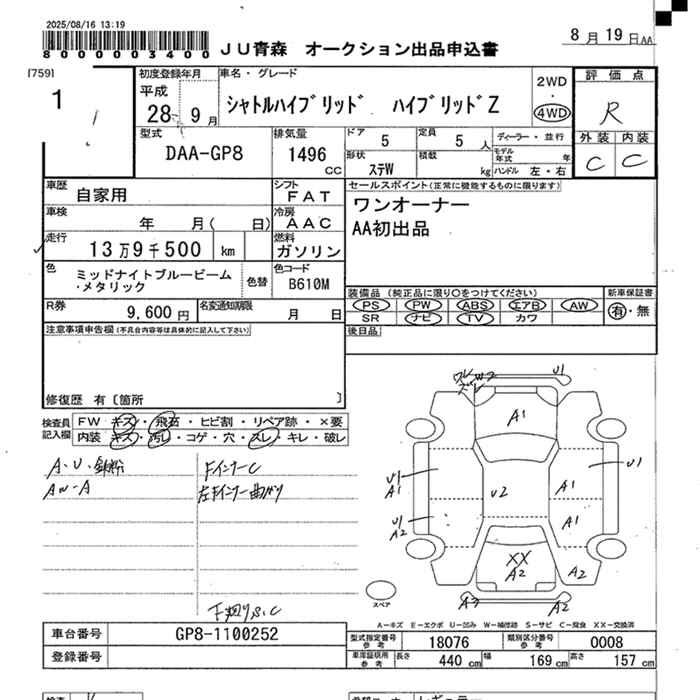 2025/08/16 13:19
80000003400
JU青森 オークション出品申込書
8月19日AA
[759]
1
初度登録年月
平成
28年9月
車名・グレード
シャトルハイブリッド ハイブリッドZ
2WD
・
4WD
評価点
R
外装 内装
C C
型式
DAA-GP8
排気量
1496
CC
ドア
5
定員
5人
ディーラー・並行
形状
ステW
積載
kg
モデル年式
年
ハンドル 左・右
車歴
自家用
シフト
FAT
セールスポイント(正常に機能するものに限ります)
ワンオーナー
AA初出品
車検
年 月( 日)
冷房
AAC
走行
13万9千500 km
燃料
ガソリン
色
ミッドナイトブルービーム
・メタリック
色替
色コード
B610M
R券
9,600円
名変通知期限
月 日
装備品(純正品に限り○をつけてください)
PS PW ABS エアB AW
SR ナビ TV カワ
新車保証書
有・無
注意事項申告欄(不具合内容等は具体的に記入して下さい)
後日品
修復歴 有〔箇所 〕
検査員
記入欄
FW キズ・飛石・ヒビ割・リペア跡・×要
内装 キズ・汚れ・コゲ・穴・スレ・キレ・破レ
A・U・鉄粉
AW-A
FインナーC
左Fインナー曲がり
F廻りS.C
ワレ W2
ズレ
U1
A1
U1
A1
U1
A2
U2
U1
A1
A1
XX
A2
A2
A2
A2
スペア
A-キズ E-エクボ U-凹み W-補修跡 S-サビ C-腐食 XX-交換済
車台番号
GP8-1100252
登録番号
型式指定番号
参考
18076
類別区分番号
参考
0008
車庫証明用
参考
長さ
440 cm
幅
169 cm
高さ
157 cm